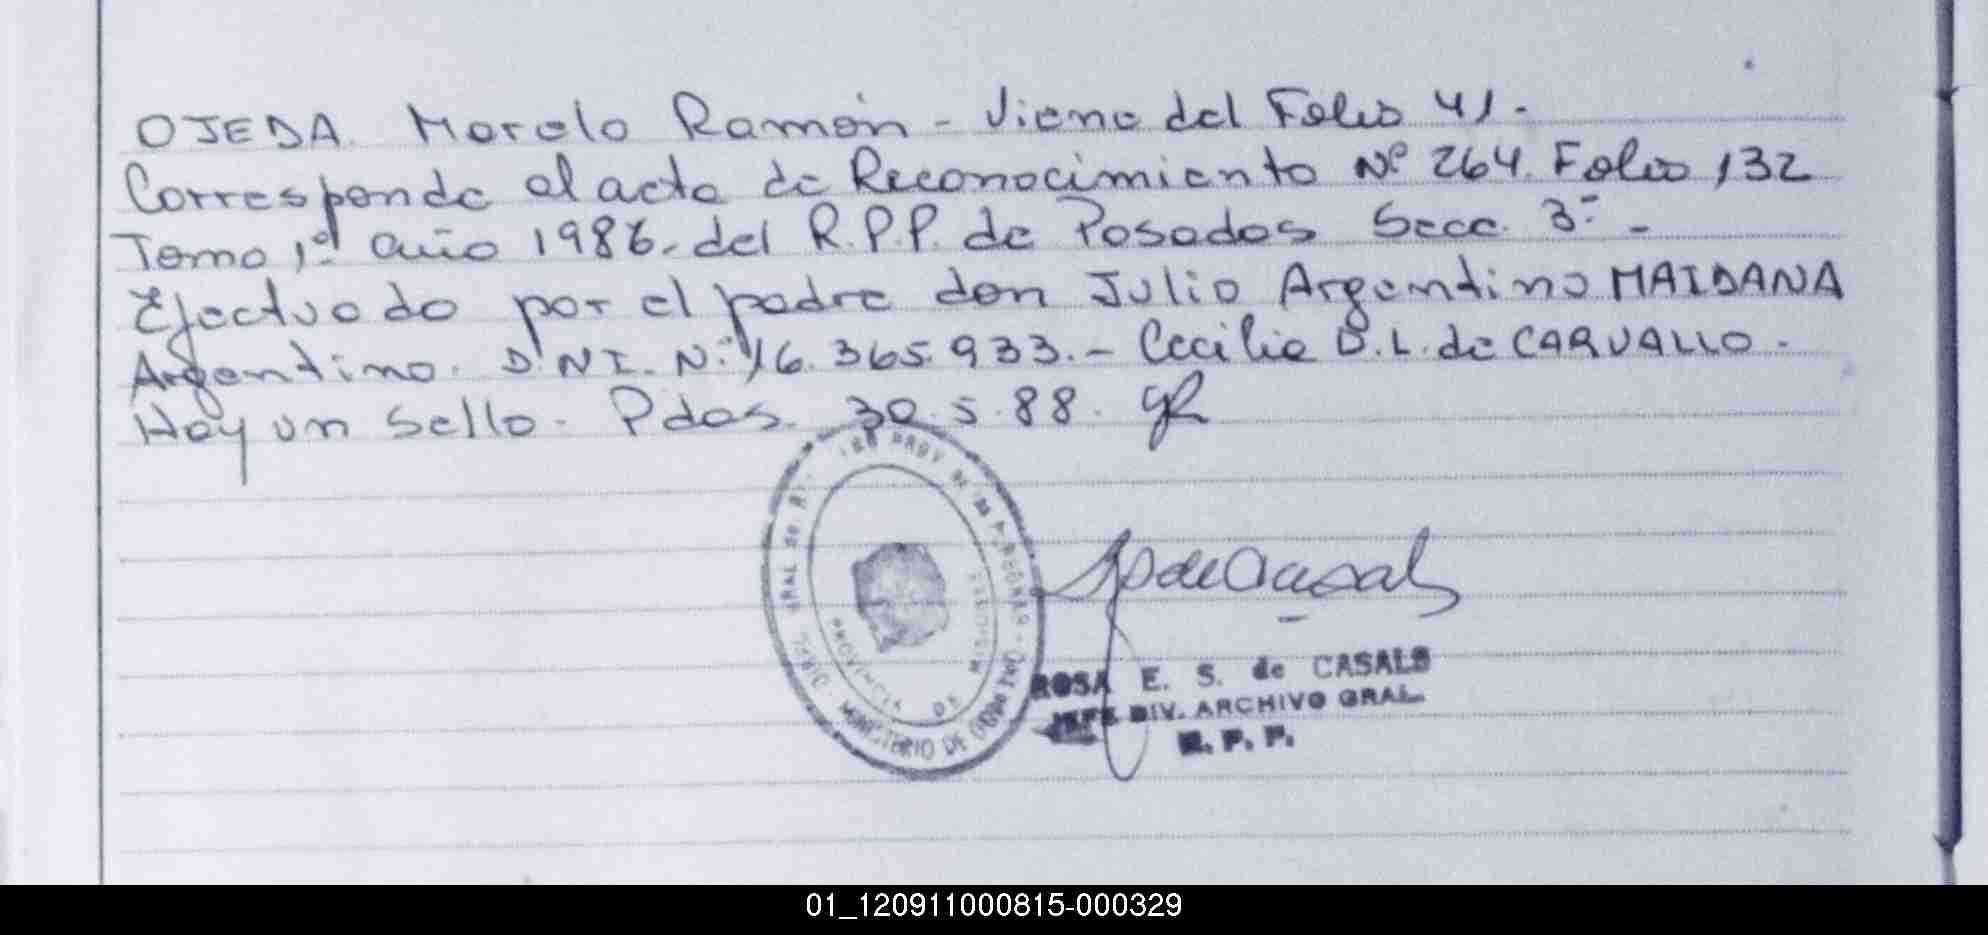 OJEDA. Marcelo Ramón - Viene del Folio 41.
Corresponde al acta de Reconocimiento Nº 264. Folio 132
Tomo 1º año 1986. del R.P.P. de Posadas Secc. 3ª -
Efectuado por el padre don Julio Argentino MAIDANA
Argentino. D.NI. Nº 16.365.933.- Cecilia D.L. de CARVALLO.
Hay un sello. Pdas. 30.5.88.
PROVINCIA DE MISIONES
MINISTERIO DE GOBIERNO
ROSA E. S. de CASALS
JEFE DIV. ARCHIVO GRAL.
R. P. P.
01_120911000815-000329